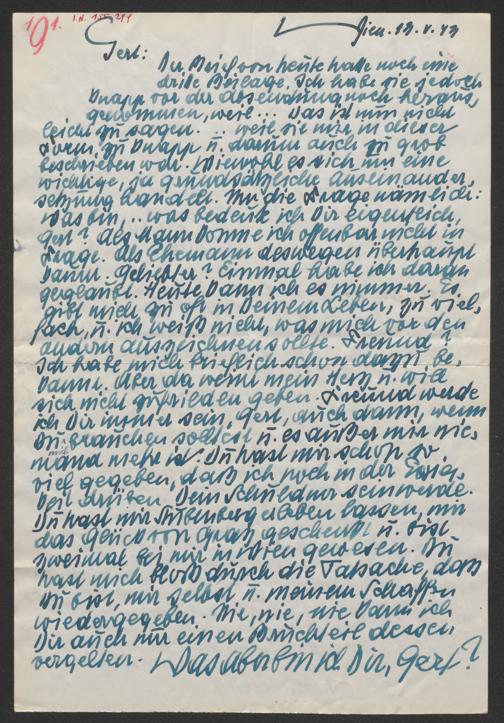 191. I.N. 155.299
Wien. 13.V.43
Gert:
Der Brief von heute hatte noch eine
dritte Beilage. Ich habe sie jedoch
knapp vor der Absendung noch heraus,
genommen, weil... Das ist nun nicht
leicht zu sagen... weil sie mir in dieser
Form zu knapp u. darum auch zu grob
beschrieben war. Wiewohl es sich um eine
wichtige, ja grundsätzliche Auseinander,
setzung handelt. Um die Frage nämlich:
Was bin, .. was bedeute ich Dir eigentlich,
Gert? Als Mann komme ich offenbar nicht in
Frage. Als Ehemann deswegen überhaupt
kaum. Geliebter? Einmal habe ich daran
geglaubt. Heute kann ich es nimmer. Es
gibt mich zu oft in Deinem Leben, zu viel,
fach, u. ich weiß nicht, was mich vor den
andern auszeichnen sollte. Freund?
Ich habe mich brieflich schon dazu be,
kannt. Aber da weint mein Herz u. will
sich nicht zufrieden geben. Freund werde
ich Dir immer sein, Gert, auch dann, wenn
Du mich brauchen solltest u. es außer mir nie,
mand mehr ist. Du hast mir schon so
viel gegeben, daß ich noch in der Ewig,
keit drüben Dein Schuldner sein werde.
Du hast mir Stubenberg erleben lassen, mir
das Glück von Graz geschenkt u. bist
zweimal bei mir in Wien gewesen. Du
hast mich bloß durch die Tatsache, daß
Du bist, mir selbst u. meinem Schaffen
wiedergegeben. Nie, nie, nie kann ich
Dir auch nur einen Bruchteil dessen
vergelten. Was aber bin ich Dir, Gert?